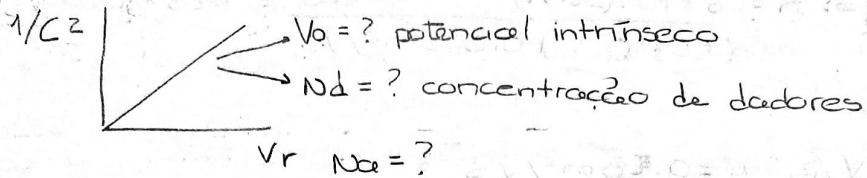 1/C²
Vo = ? potencial intrínseco
Nd = ? concentração de dadores
Vr Na = ?